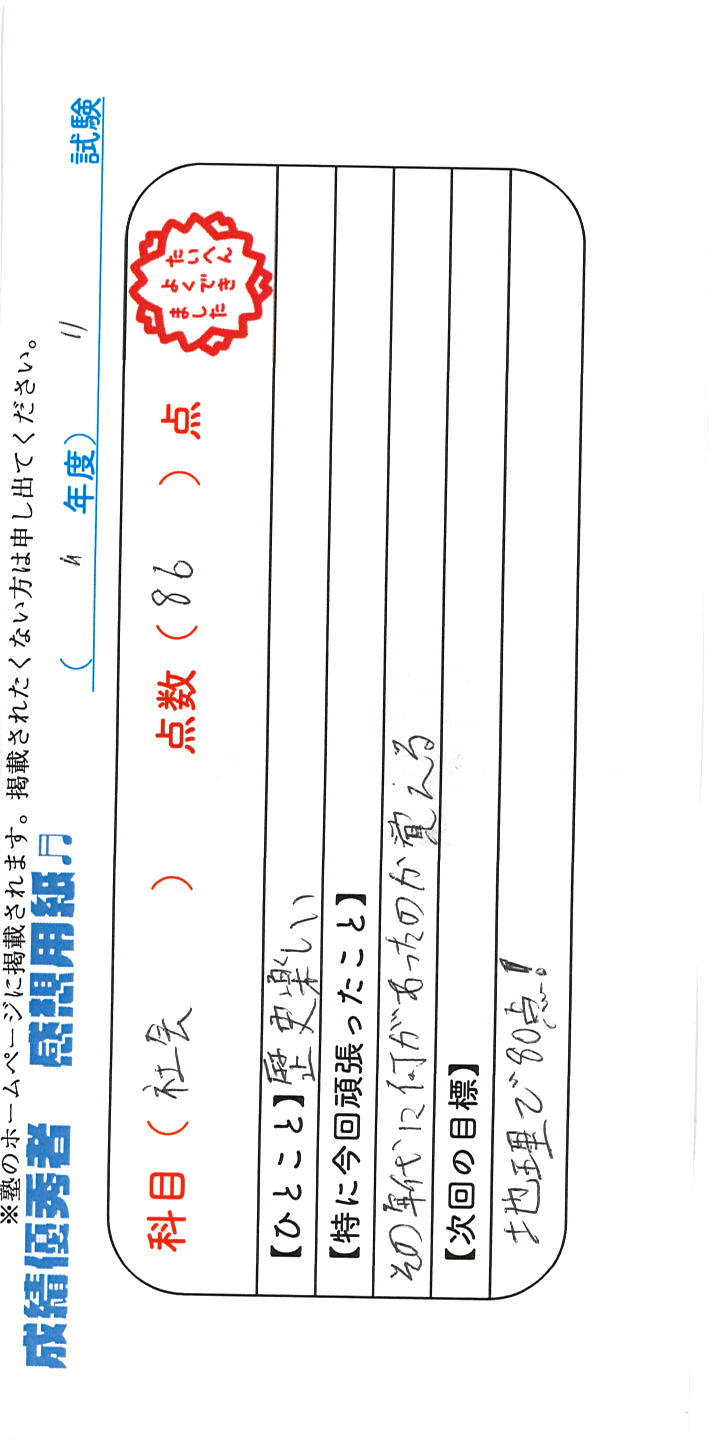 ※塾のホームページに掲載されます。掲載されたくない方は申し出てください。
成績優秀者 感想用紙♫
( 年度) 試験
科目 ( 社会 ) 点数 ( 86 ) 点
たいへん
よくでき
ました
【ひとこと】歴史楽しい
【特に今回頑張ったこと】
その年代に何があったのか覚える
【次回の目標】
地理で80点!